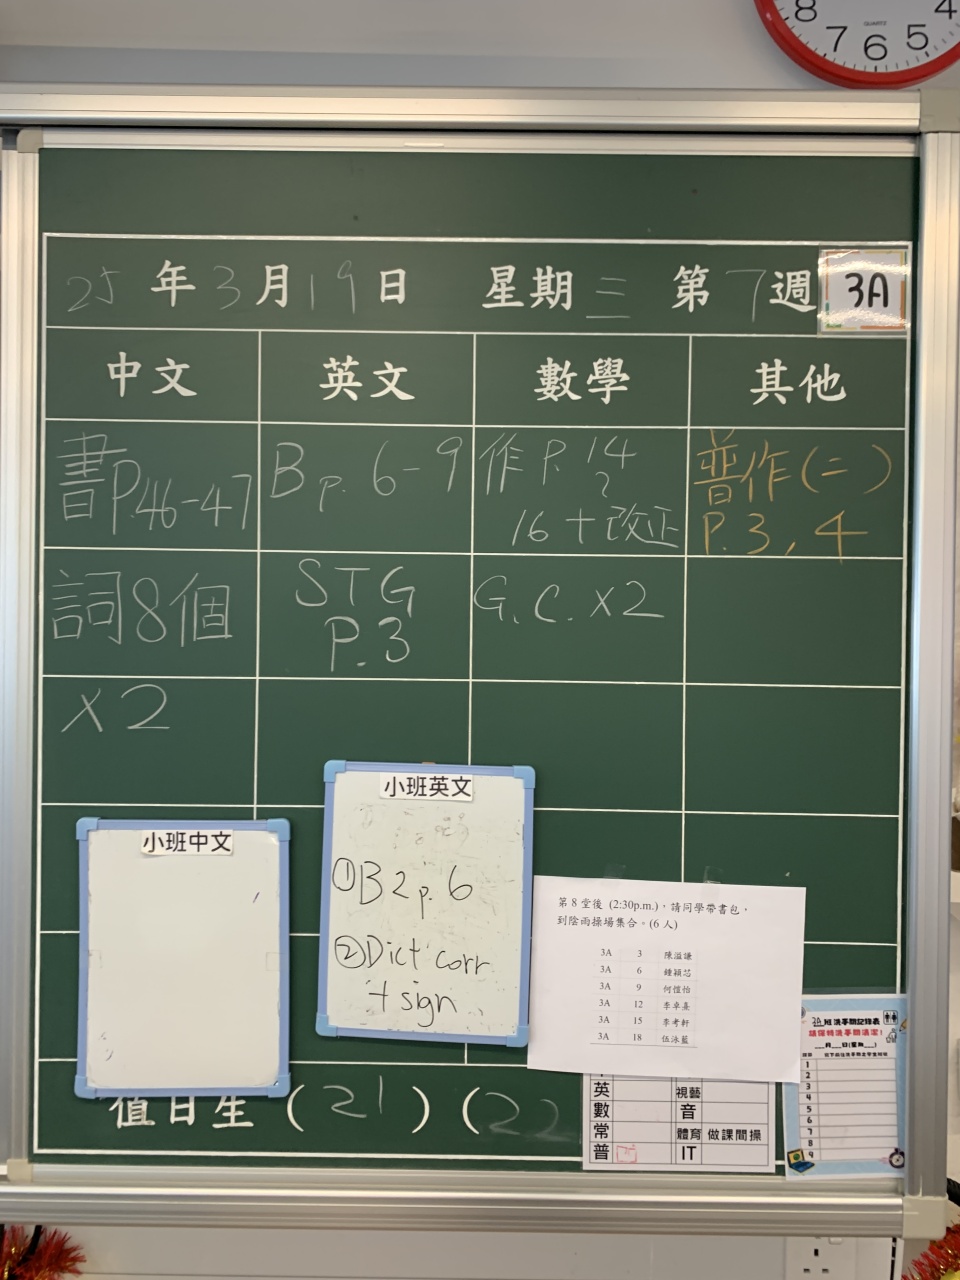 8 7 6 5 4
QUARTZ
25 年 3 月 19 日 星期 三 第 7 週 3A
中文 英文 數學 其他
書P.46-47
B p. 6-9
作 P. 14
16 + 改正
普作(二)
P.3, 4
詞8個
STG
P.3
G.C. x2
x2
小班英文
① B2 p. 6
② Dict corr
+ sign
小班中文
第 8 堂後 (2:30p.m.),請同學帶書包,
到陰雨操場集合。(6 人)
3A 3 陳溢謙
3A 6 鍾穎芯
3A 9 何愷怡
3A 12 李卓熹
3A 15 李考軒
3A 18 伍泳藍
值日生 (21) (22
英 視藝
數 音
常 體育 做課間操
普 IT
3A 班洗手間記錄表
請保持洗手間清潔!
月 日(星期 )
1
2
3
4
5
6
7
8
9